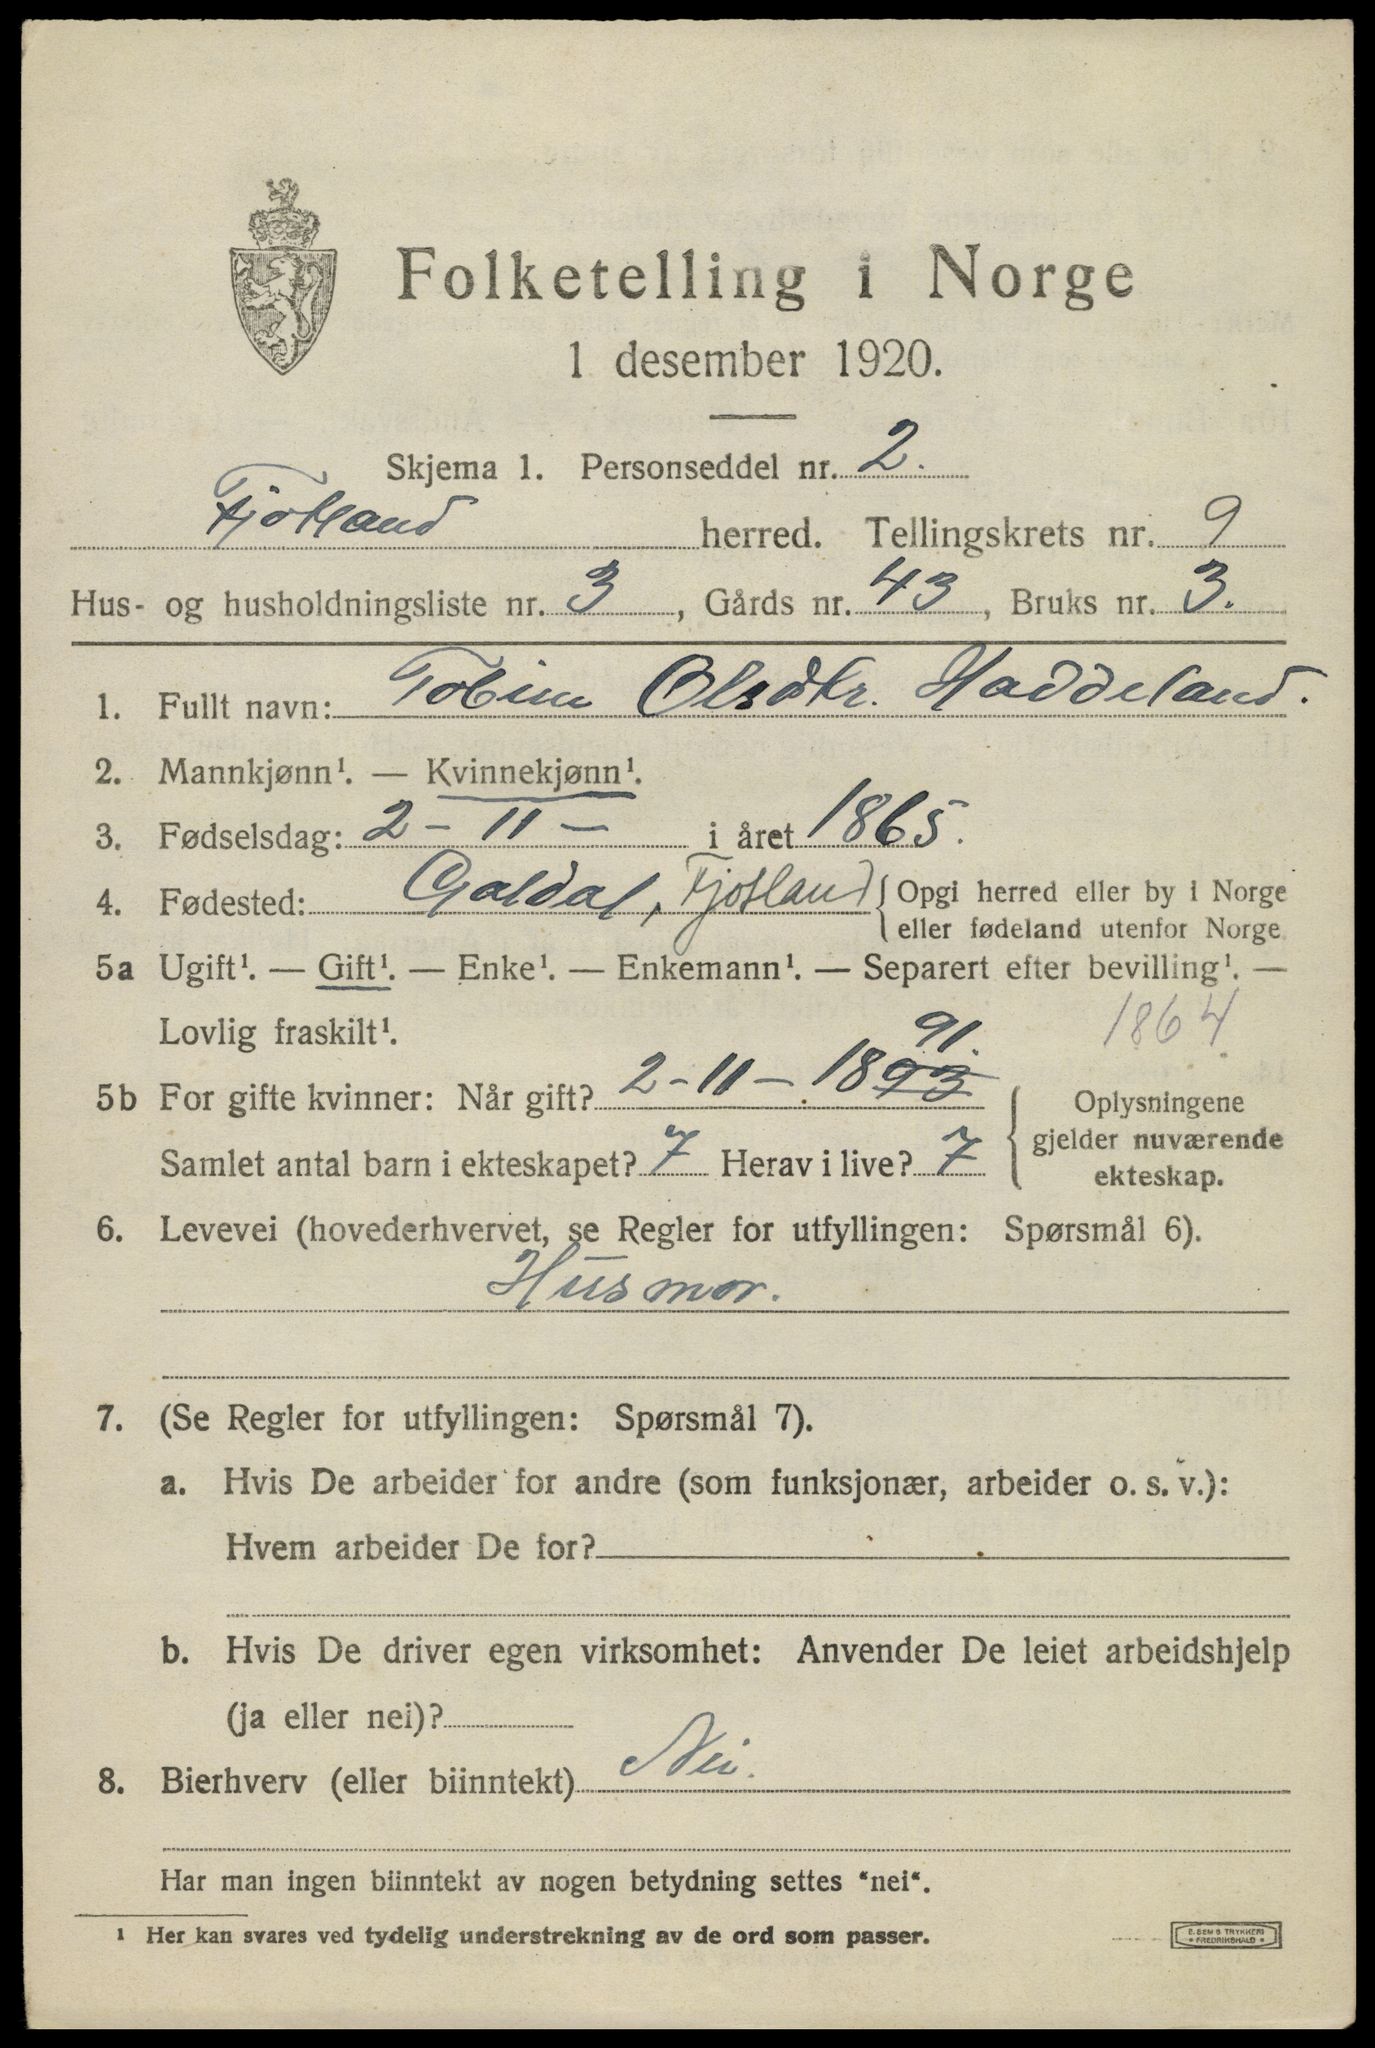 Folketelling i Norge
1 desember 1920.
Skjema 1. Personseddel nr. 2.
Fjotland herred. Tellingskrets nr. 9
Hus- og husholdningsliste nr. 3, Gårds nr. 43, Bruks nr. 3.
1. Fullt navn: Tobine Olsdtr. Haddeland.
2. Mannkjønn¹. — Kvinnekjønn¹.
3. Fødselsdag: 2 - 11 - i året 1865.
4. Fødested: Galdal, Fjotland { Opgi herred eller by i Norge
eller fødeland utenfor Norge
5a Ugift¹. — Gift¹. — Enke¹. — Enkemann¹. — Separert efter bevilling¹. —
Lovlig fraskilt¹. 1864
91.
5b For gifte kvinner: Når gift? 2 - 11 - 1893
Samlet antal barn i ekteskapet? 7 Herav i live? 7
Oplysningene
gjelder nuværende
ekteskap.
6. Levevei (hovederhvervet, se Regler for utfyllingen: Spørsmål 6).
Husmor.
7. (Se Regler for utfyllingen: Spørsmål 7).
a. Hvis De arbeider for andre (som funksjonær, arbeider o. s. v.):
Hvem arbeider De for?
b. Hvis De driver egen virksomhet: Anvender De leiet arbeidshjelp
(ja eller nei)?
8. Bierhverv (eller biinntekt) Nei.
Har man ingen biinntekt av nogen betydning settes "nei".
¹ Her kan svares ved tydelig understrekning av de ord som passer.
E. SEM S TRYKKERI
* FREDRIKSHALD *